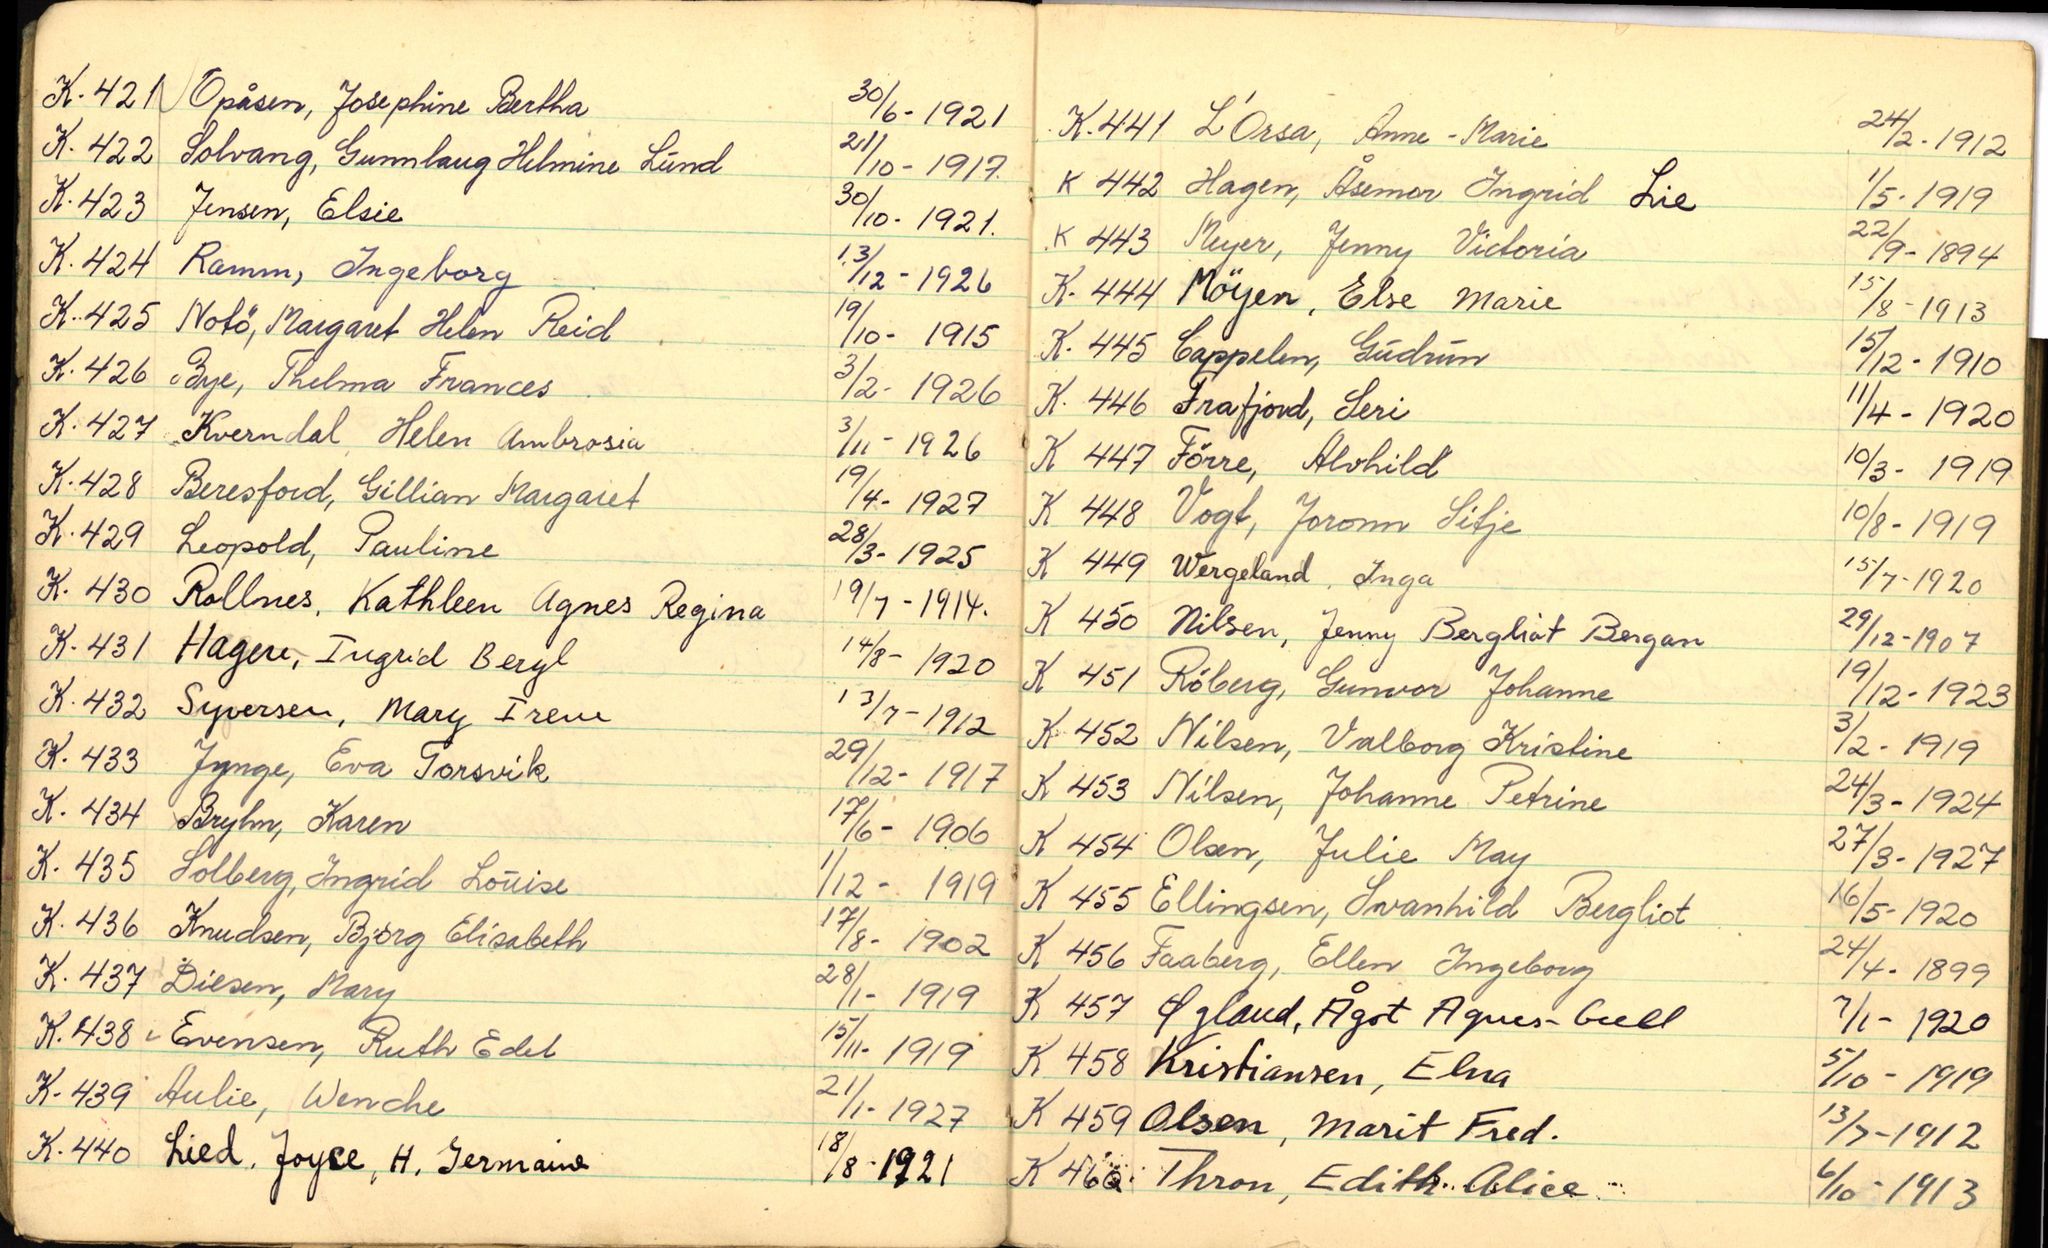 K. 421 Opåsen, Josephine Bertha 30/6 - 1921
K. 422 Solvang, Gunnlaug Helmine Lund 21/10 - 1917.
K. 423 Jensen, Elsie 30/10 - 1921.
K. 424 Ramm, Ingeborg 13/12 - 1926
K. 425 Notö, Margaret Helen Reid 19/10 - 1915
K. 426 Bye, Thelma Frances 3/2 - 1926
K. 427 Kverndal, Helen Ambrosia 3/11 - 1926
K. 428 Beresford, Gillian Margaret 19/4 - 1927
K. 429 Leopold, Pauline 28/3 - 1925
K. 430 Rollnes, Kathleen Agnes Regina 19/7 - 1914.
K. 431 Hagen, Ingrid Beryl 14/8 - 1920
K. 432 Syversen, Mary Irene 13/7 - 1912
K. 433 Jynge, Eva Torsvik 29/12 - 1917
K. 434 Bryhn, Karen 17/6 - 1906
K. 435 Solberg, Ingrid Louise 1/12 - 1919
K. 436 Knudsen, Björg Elisabeth 17/8 - 1902
K. 437 Diesen, Mary 28/1 - 1919
K. 438 Evensen, Ruth Edel 15/11 - 1919
K. 439 Aulie, Wenche 21/1 - 1927
K. 440 Lied, Joyce, H. Germaine 18/8 - 1921
K. 441 L'Orsa, Anne - Marie 24/2 - 1912
K 442 Hagen, Åsemor Ingrid Lie 1/5 - 1919
K 443 Meyer, Jenny Victoria 22/9 - 1894
K. 444 Möyen, Else Marie 15/8 - 1913
K. 445 Cappelen, Gudrun 15/12 - 1910
K. 446 Frafjord, Seri 11/4 - 1920
K 447 Förre, Alvhild 10/3 - 1919
K 448 Vogt, Joronn Sitje 10/8 - 1919
K 449 Wergeland, Inga 15/7 - 1920
K 450 Nilsen, Jenny Bergliot Bergan 29/12 - 1907
K 451 Röberg, Gunvor Johanne 19/12 - 1923
K 452 Nilsen, Valborg Kristine 3/2 - 1919
K 453 Nilsen, Johanne Petrine 24/3 - 1924
K 454 Olsen, Julie May 27/3 - 1927
K 455 Ellingsen, Svanhild Bergliot 16/5 - 1920
K 456 Faaberg, Ellen Ingeborg 24/4 - 1899
K 457 Øgland, Ågot Agnes 7/1 - 1920
K 458 Kristiansen, Elna 5/10 - 1919
K 459 Olsen, Marit Fred. 13/7 - 1912
K 460. Thron, Edith Alice 6/10 - 1913